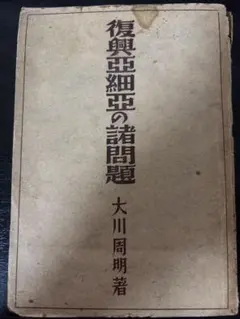 復興亞細亞の諸問題
大川周明著